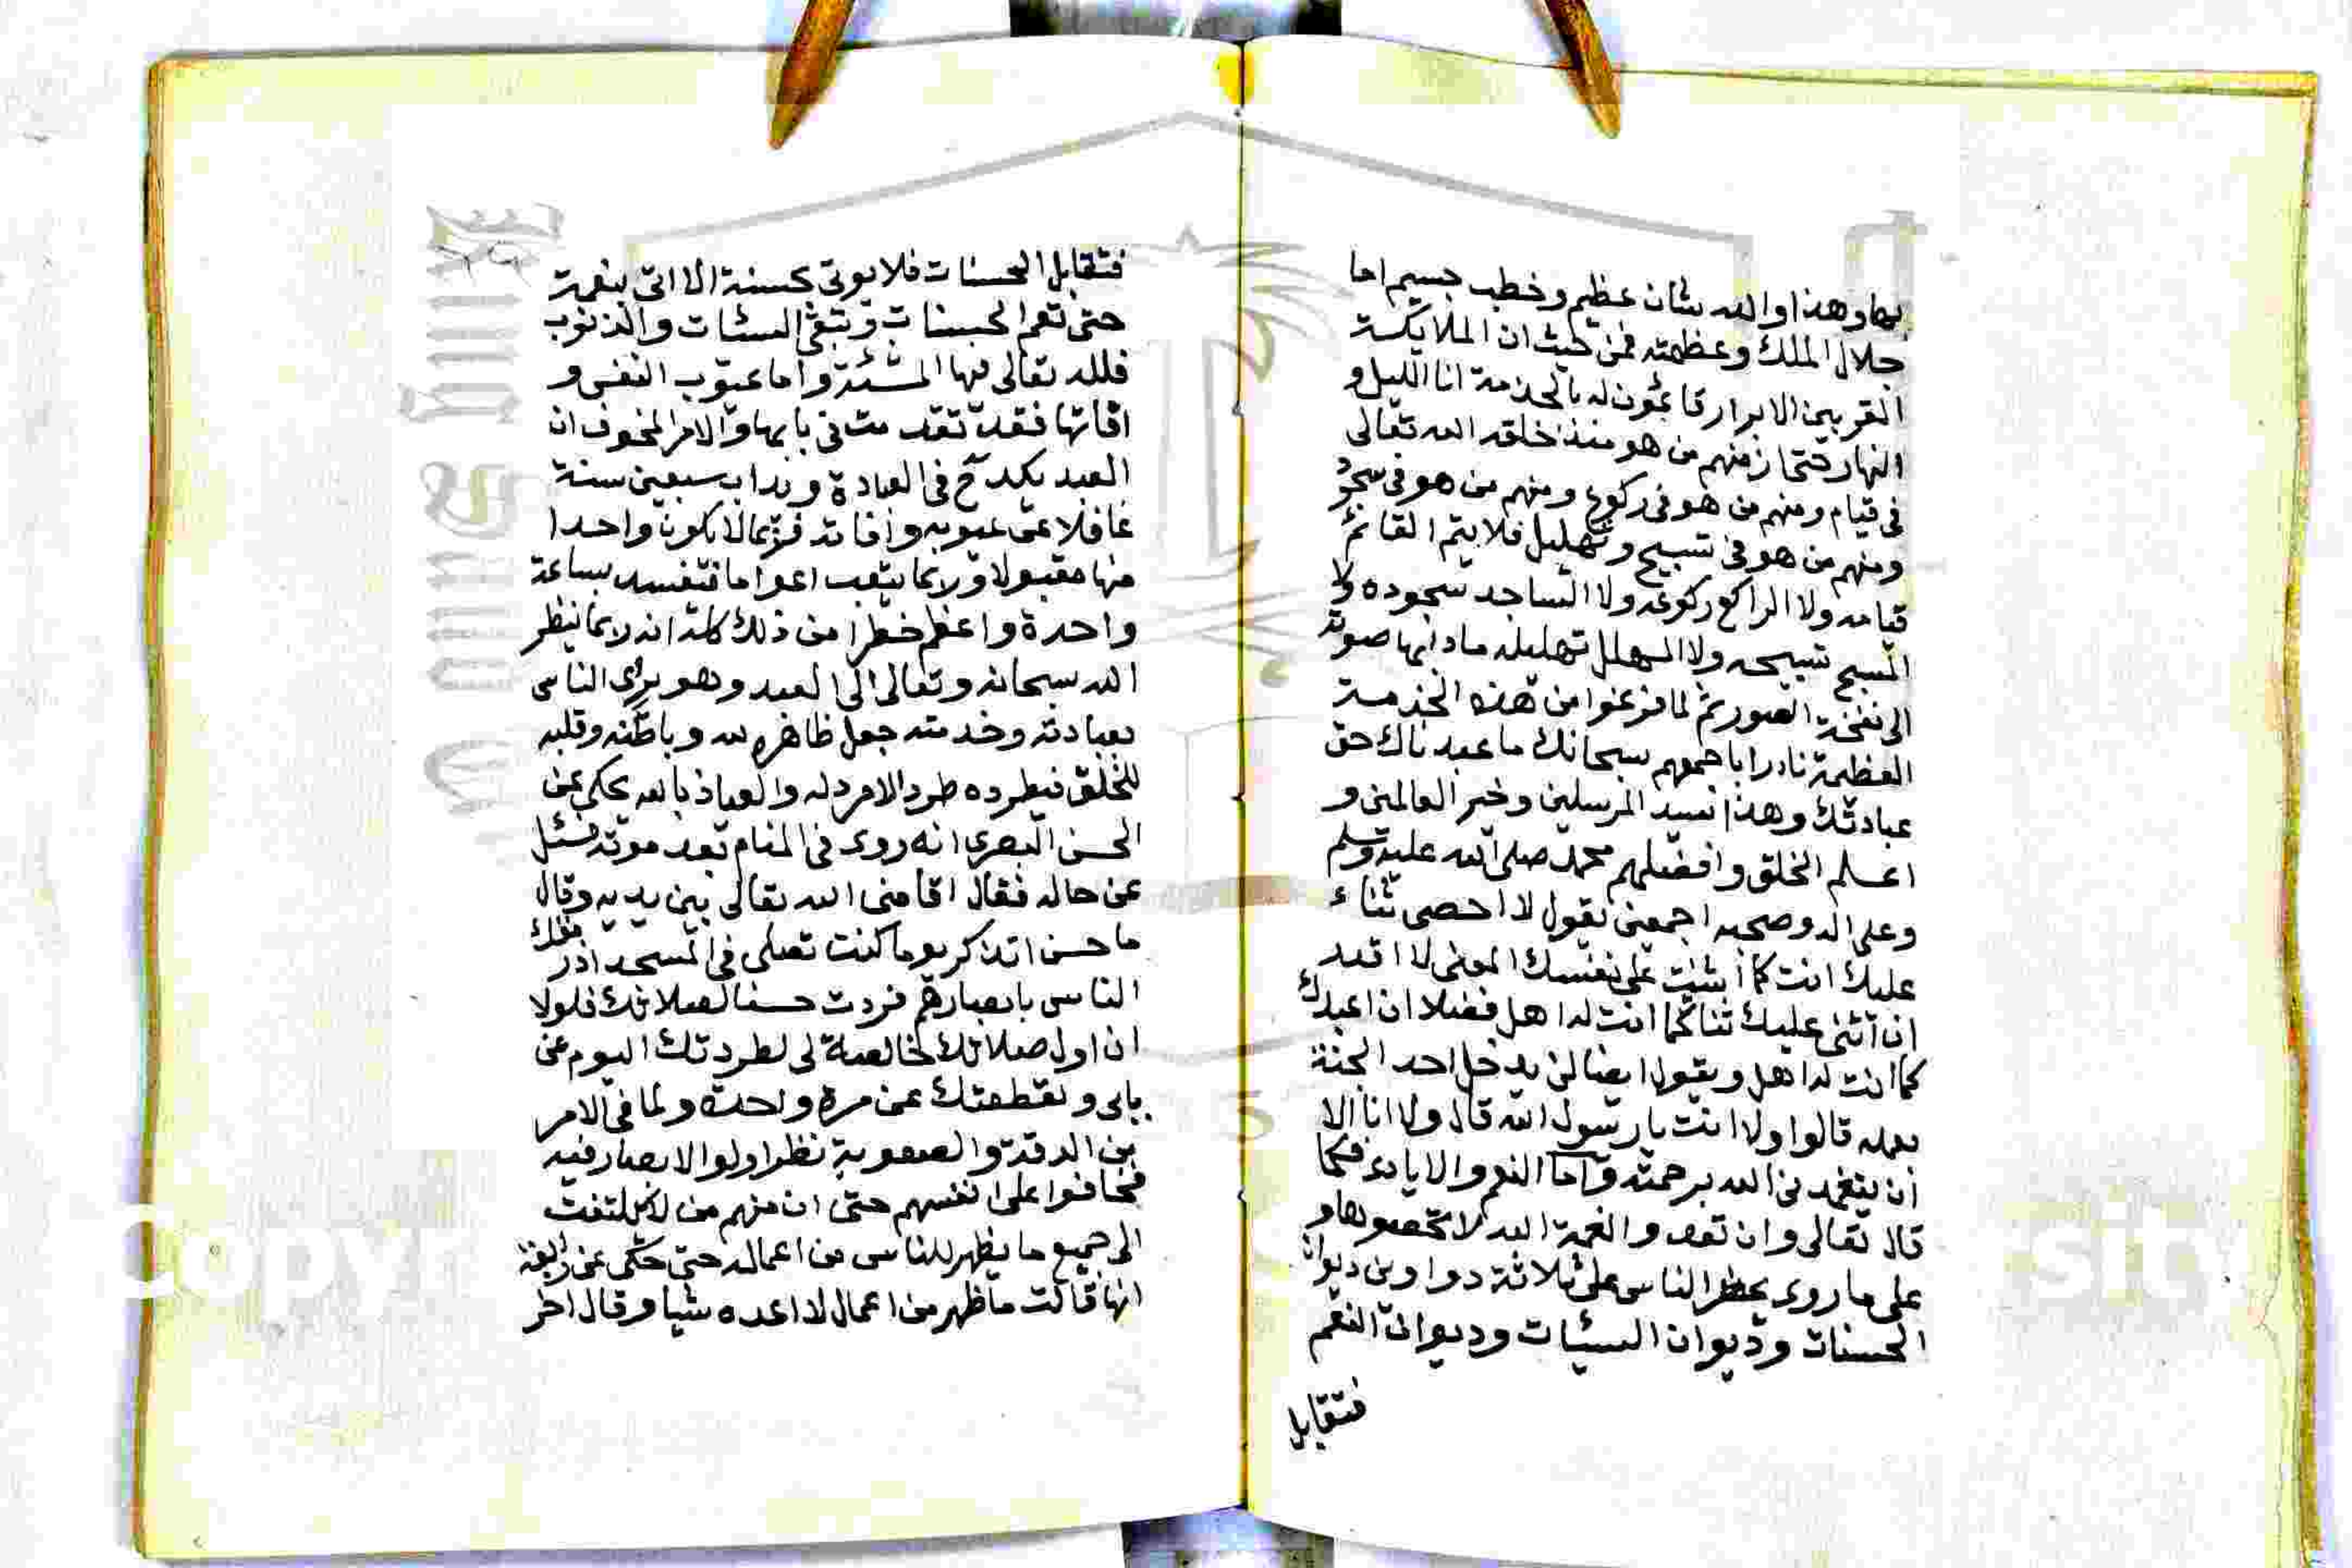 بها وهذا والله شان عظيم وخطب جسيم اما
جلال الملك وعظمته فمن حيث ان الملايكة
المقربين الابرار قائمون له بالخدمة انا الليل و
النهار حتى ان منهم من هو منذ خلقه الله تعالى
فى قيام ومنهم من هو فى ركوع ومنهم من هو فى سجود
ومنهم من هو فى تسبيح وتهليل فلا يتم القائم
قيامه ولا الراكع ركوعه ولا الساجد سجوده ولا
المسبح تسبيحه ولا المهلل تهليله مادا بها صوته
الى نفخة الصور ثم لما فرغوا من هذه الخدمة
العظيمة نادرا باجمعهم سبحانك ما عبدناك حق
عبادتك وهذا سيد المرسلين وخير العالمين و
اعلم الخلق وافضلهم محمد صلى الله عليه وسلم
وعلى اله وصحبه اجمعين يقول لا احصى ثناء
عليك انت كما اثنيت على نفسك المعنى لا اقدر
ان اثنى عليك ثنا كما انت له اهل فضلا ان اعبدك
كما انت له اهل ويقول ايضا لن يدخل احد الجنة
بعمله قالوا ولا انت يا رسول الله قال ولا انا الا
ان يتغمدنى الله برحمته واما النعم والايادى فكما
قال تعالى وان تعدوا نعمة الله لا تحصوها و
على ما روى يحظر الناس على ثلاثة دواوين ديوان
الحسنات وديوان السيئات وديوان النعم
فتقابل
فتقابل الحسنات فلا يوتى بحسنة الا اتى بنعمة
حتى تعم الحسنات وتبقى السئات والذنوب
فلله تعالى فيها المشئة واما عيوب النفس و
افاتها فقد تقدمت فى بابها والامر المخوف ان
العبد يكدح فى العبادة ويداب سبعين سنة
غافلا عن عيوبه وافاته فربما لا يكون واحدا
منها مقبولا وربما يتعب اعواما فتفسد بساعة
واحدة واعظم خطرا من ذلك كله انه ربما ينظر
الله سبحانه وتعالى الى العبد وهو يراى الناس
بعبادته وخدمته جعل ظاهره لله وباطنه وقلبه
للخلق فيطرده طرد الامرد له والعياذ بالله يحكى عن
الحسن البصرى انه روى فى المنام بعد موته فسئل
عن حاله فقال اقامنى الله تعالى بين يديه وقال
ما حسن اتذكر يوما كنت تصلى فى المسجد اذ رمقك
الناس بابصارهم فزدت حسنا لصلاتك فلولا
ان اول صلاتك خالصة لى لطردتك اليوم عن
بابى ولقطعتك عن مرة واحدة ولما فى الامر
من الدقة والصعوبة نظر اولوا الابصار فيه
فخافوا على انفسهم حتى ان منهم من لا يلتفت
الى جميع ما يظهر للناس من اعماله حتى حكى عن رابعة
انها قالت ما ظهر من اعمال لا اعده شيا وقال اخر